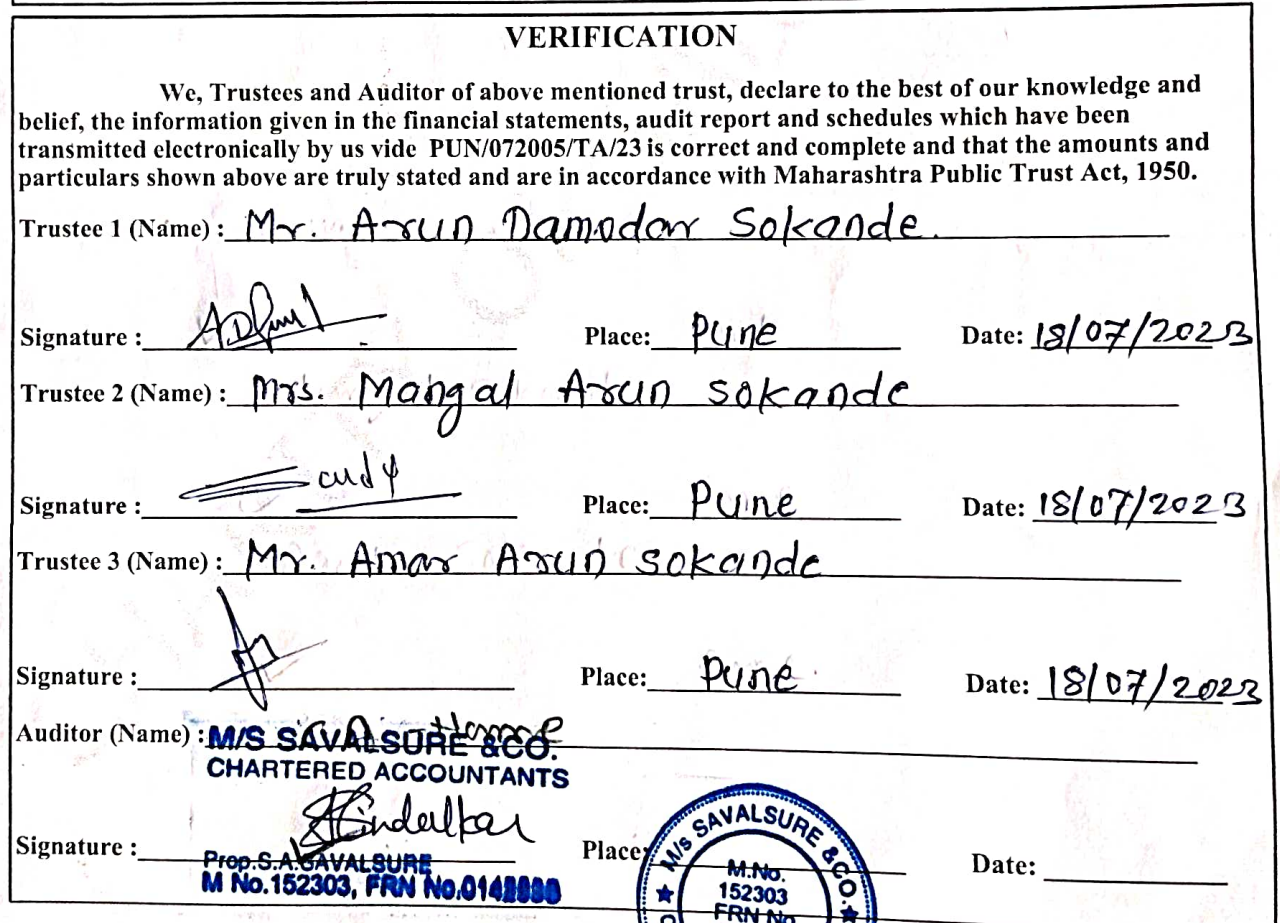 VERIFICATION
We, Trustees and Auditor of above mentioned trust, declare to the best of our knowledge and
belief, the information given in the financial statements, audit report and schedules which have been
transmitted electronically by us vide PUN/072005/TA/23 is correct and complete and that the amounts and
particulars shown above are truly stated and are in accordance with Maharashtra Public Trust Act, 1950.
Trustee 1 (Name) : Mr. Arun Damodar Sokande.
Signature : Place: Pune Date: 18/07/2023
Trustee 2 (Name) : Mrs. Mangal Arun sokande
Signature : Place: Pune Date: 18/07/2023
Trustee 3 (Name) : Mr. Amar Arun sokande
Signature : Place: Pune Date: 18/07/2023
Auditor (Name) : M/S SAVALSURE &CO.
CHARTERED ACCOUNTANTS
Signature : Place: Date:
Prop.S.A.SAVALSURE
M No.152303, FRN No.
M/s SAVALSURE & CO.
M.No.
152303
FRN No